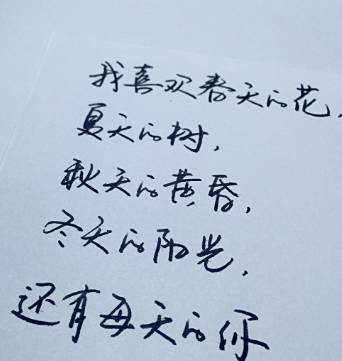 我喜欢春天的花，
夏天的树，
秋天的黄昏，
冬天的阳光，
还有每天的你